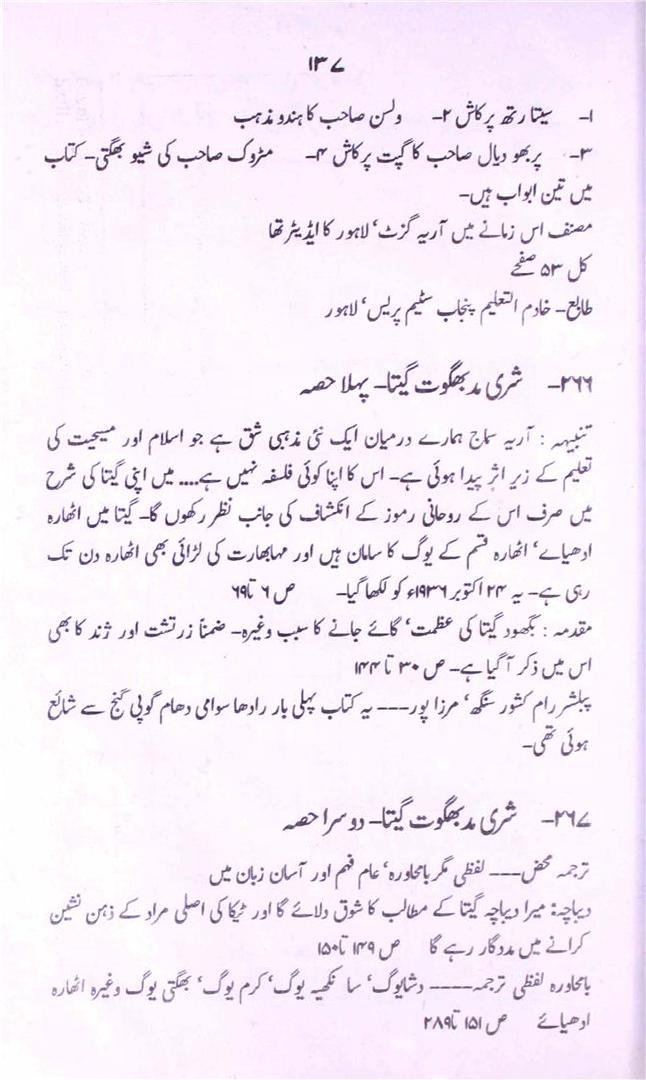 ۱۳۷
۱- سیتا رتھ پرکاش ۲- ولسن صاحب کا ہندو مذہب
۳- پربھو دیال صاحب کا گپت پرکاش ۴- مٹروک صاحب کی شیو بھگتی- کتاب
میں تین ابواب ہیں-
مصنف اس زمانے میں آریہ گزٹ، لاہور کا ایڈیٹر تھا
کل ۵۳ صفحے
طابع- خادم التعلیم پنجاب سٹیم پریس، لاہور
۲۶۶- شری مد بھگوت گیتا- پہلا حصہ
تنبیہہ : آریہ سماج ہمارے درمیان ایک نئی مذہبی شق ہے جو اسلام اور مسیحیت کی
تعلیم کے زیر اثر پیدا ہوئی ہے- اس کا اپنا کوئی فلسفہ نہیں ہے.... میں اپنی گیتا کی شرح
میں صرف اس کے روحانی رموز کے انکشاف کی جانب نظر رکھوں گا- گیتا میں اٹھارہ
ادھیاے، اٹھارہ قسم کے یوگ کا سامان ہیں اور مہابھارت کی لڑائی بھی اٹھارہ دن تک
رہی ہے- یہ ۲۴ اکتوبر ۱۹۳۶ء کو لکھا گیا- ص ۶ تا ۶۹
مقدمہ : بگھود گیتا کی عظمت، گائے جانے کا سبب وغیرہ- ضمناً زرتشت اور ژند کا بھی
اس میں ذکر آ گیا ہے- ص ۳۰ تا ۱۴۴
پبلشر رام کشور سنگھ، مرزا پور--- یہ کتاب پہلی بار رادھا سوامی دھام گوپی گنج سے شائع
ہوئی تھی-
۲۶۷- شری مد بھگوت گیتا- دوسرا حصہ
ترجمہ محض--- لفظی مگر بامحاورہ، عام فہم اور آسان زبان میں
دیباچہ: میرا دیباچہ گیتا کے مطالب کا شوق دلائے گا اور ٹیکا کی اصلی مراد کے ذہن نشین
کرانے میں مددگار رہے گا ص ۱۴۹ تا ۱۵۰
بامحاورہ لفظی ترجمہ---- دشایوگ، سانکھیہ یوگ، کرم یوگ، بھگتی یوگ وغیرہ اٹھارہ
ادھیائے ص ۱۵۱ تا ۲۸۹